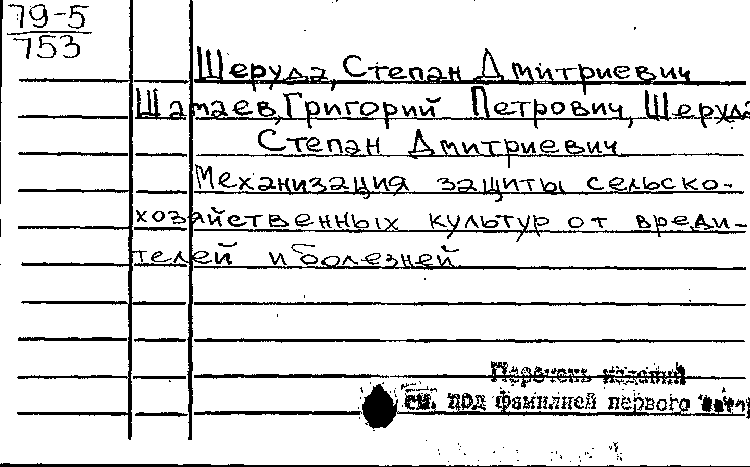 79-5
753
Шеруда, Степан Дмитриевич
Шамаев, Григорий Петрович, Шеруда
Степан Дмитриевич
Механизация защиты сельско-
хозяйственных культур от вреди-
телей и болезней
Перечень изданий
см. под фамилией первого автора